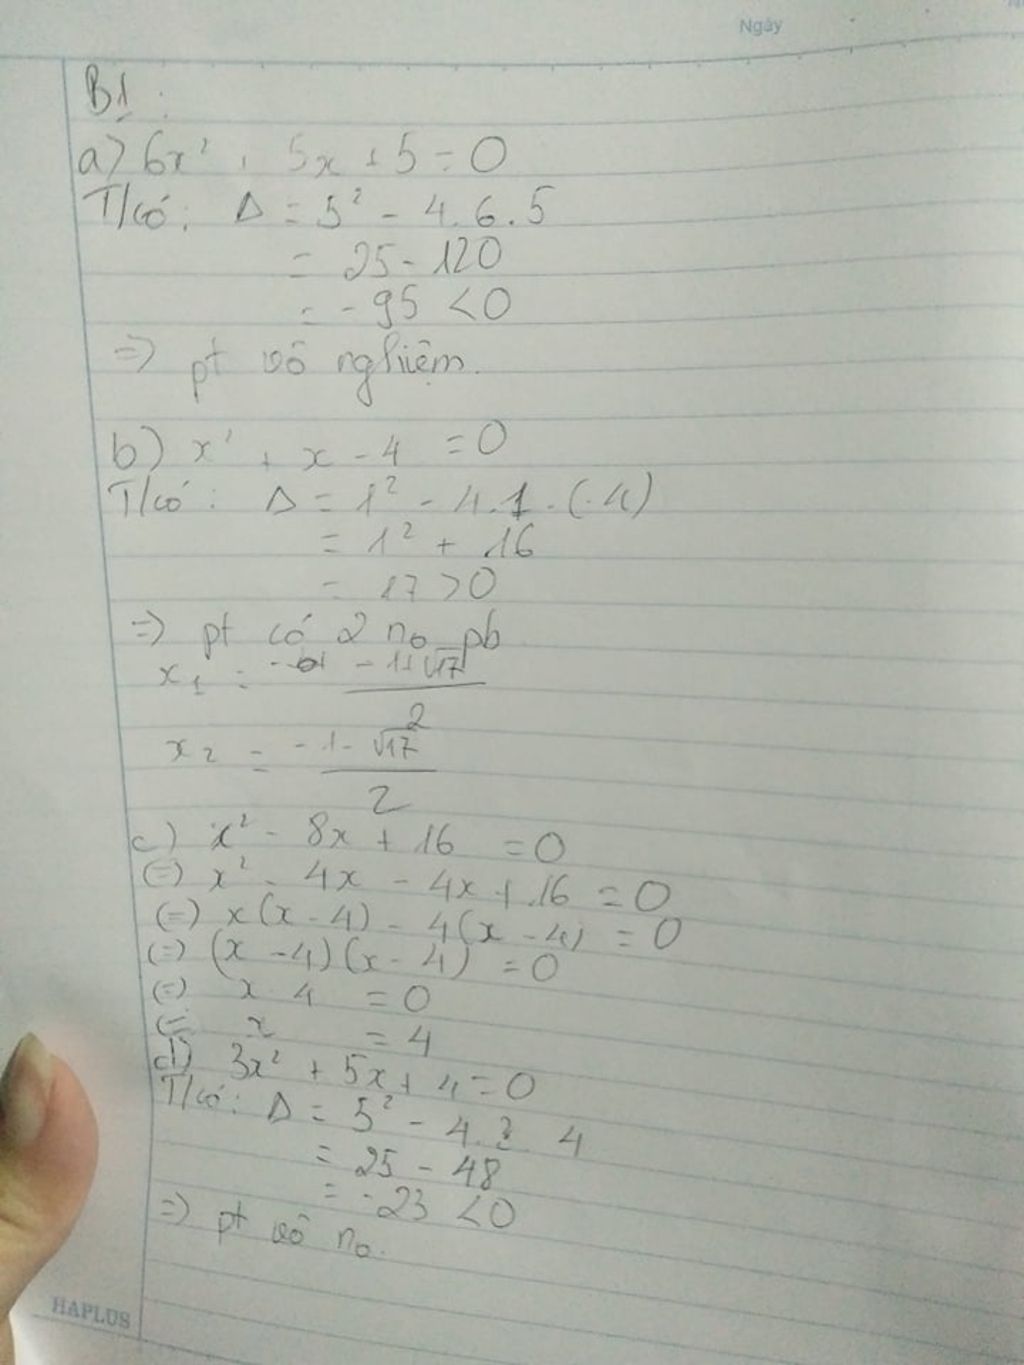 Ngày
B1:
a) 6x² + 5x + 5 = 0
T/có: Δ = 5² - 4.6.5
= 25 - 120
= -95 < 0
=> pt vô nghiệm.
b) x² + x - 4 = 0
T/có: Δ = 1² - 4.1.(-4)
= 1² + 16
= 17 > 0
=> pt có 2 no pb
x₁ = (-1+√17)/2
x₂ = (-1-√17)/2
c) x² - 8x + 16 = 0
(=) x² - 4x - 4x + 16 = 0
(=) x(x - 4) - 4(x - 4) = 0
(=) (x - 4)(x - 4) = 0
(=) x - 4 = 0
(=) x = 4
d) 3x² + 5x + 4 = 0
T/có: Δ = 5² - 4.3.4
= 25 - 48
= -23 < 0
=> pt vô no.
HAPLUS